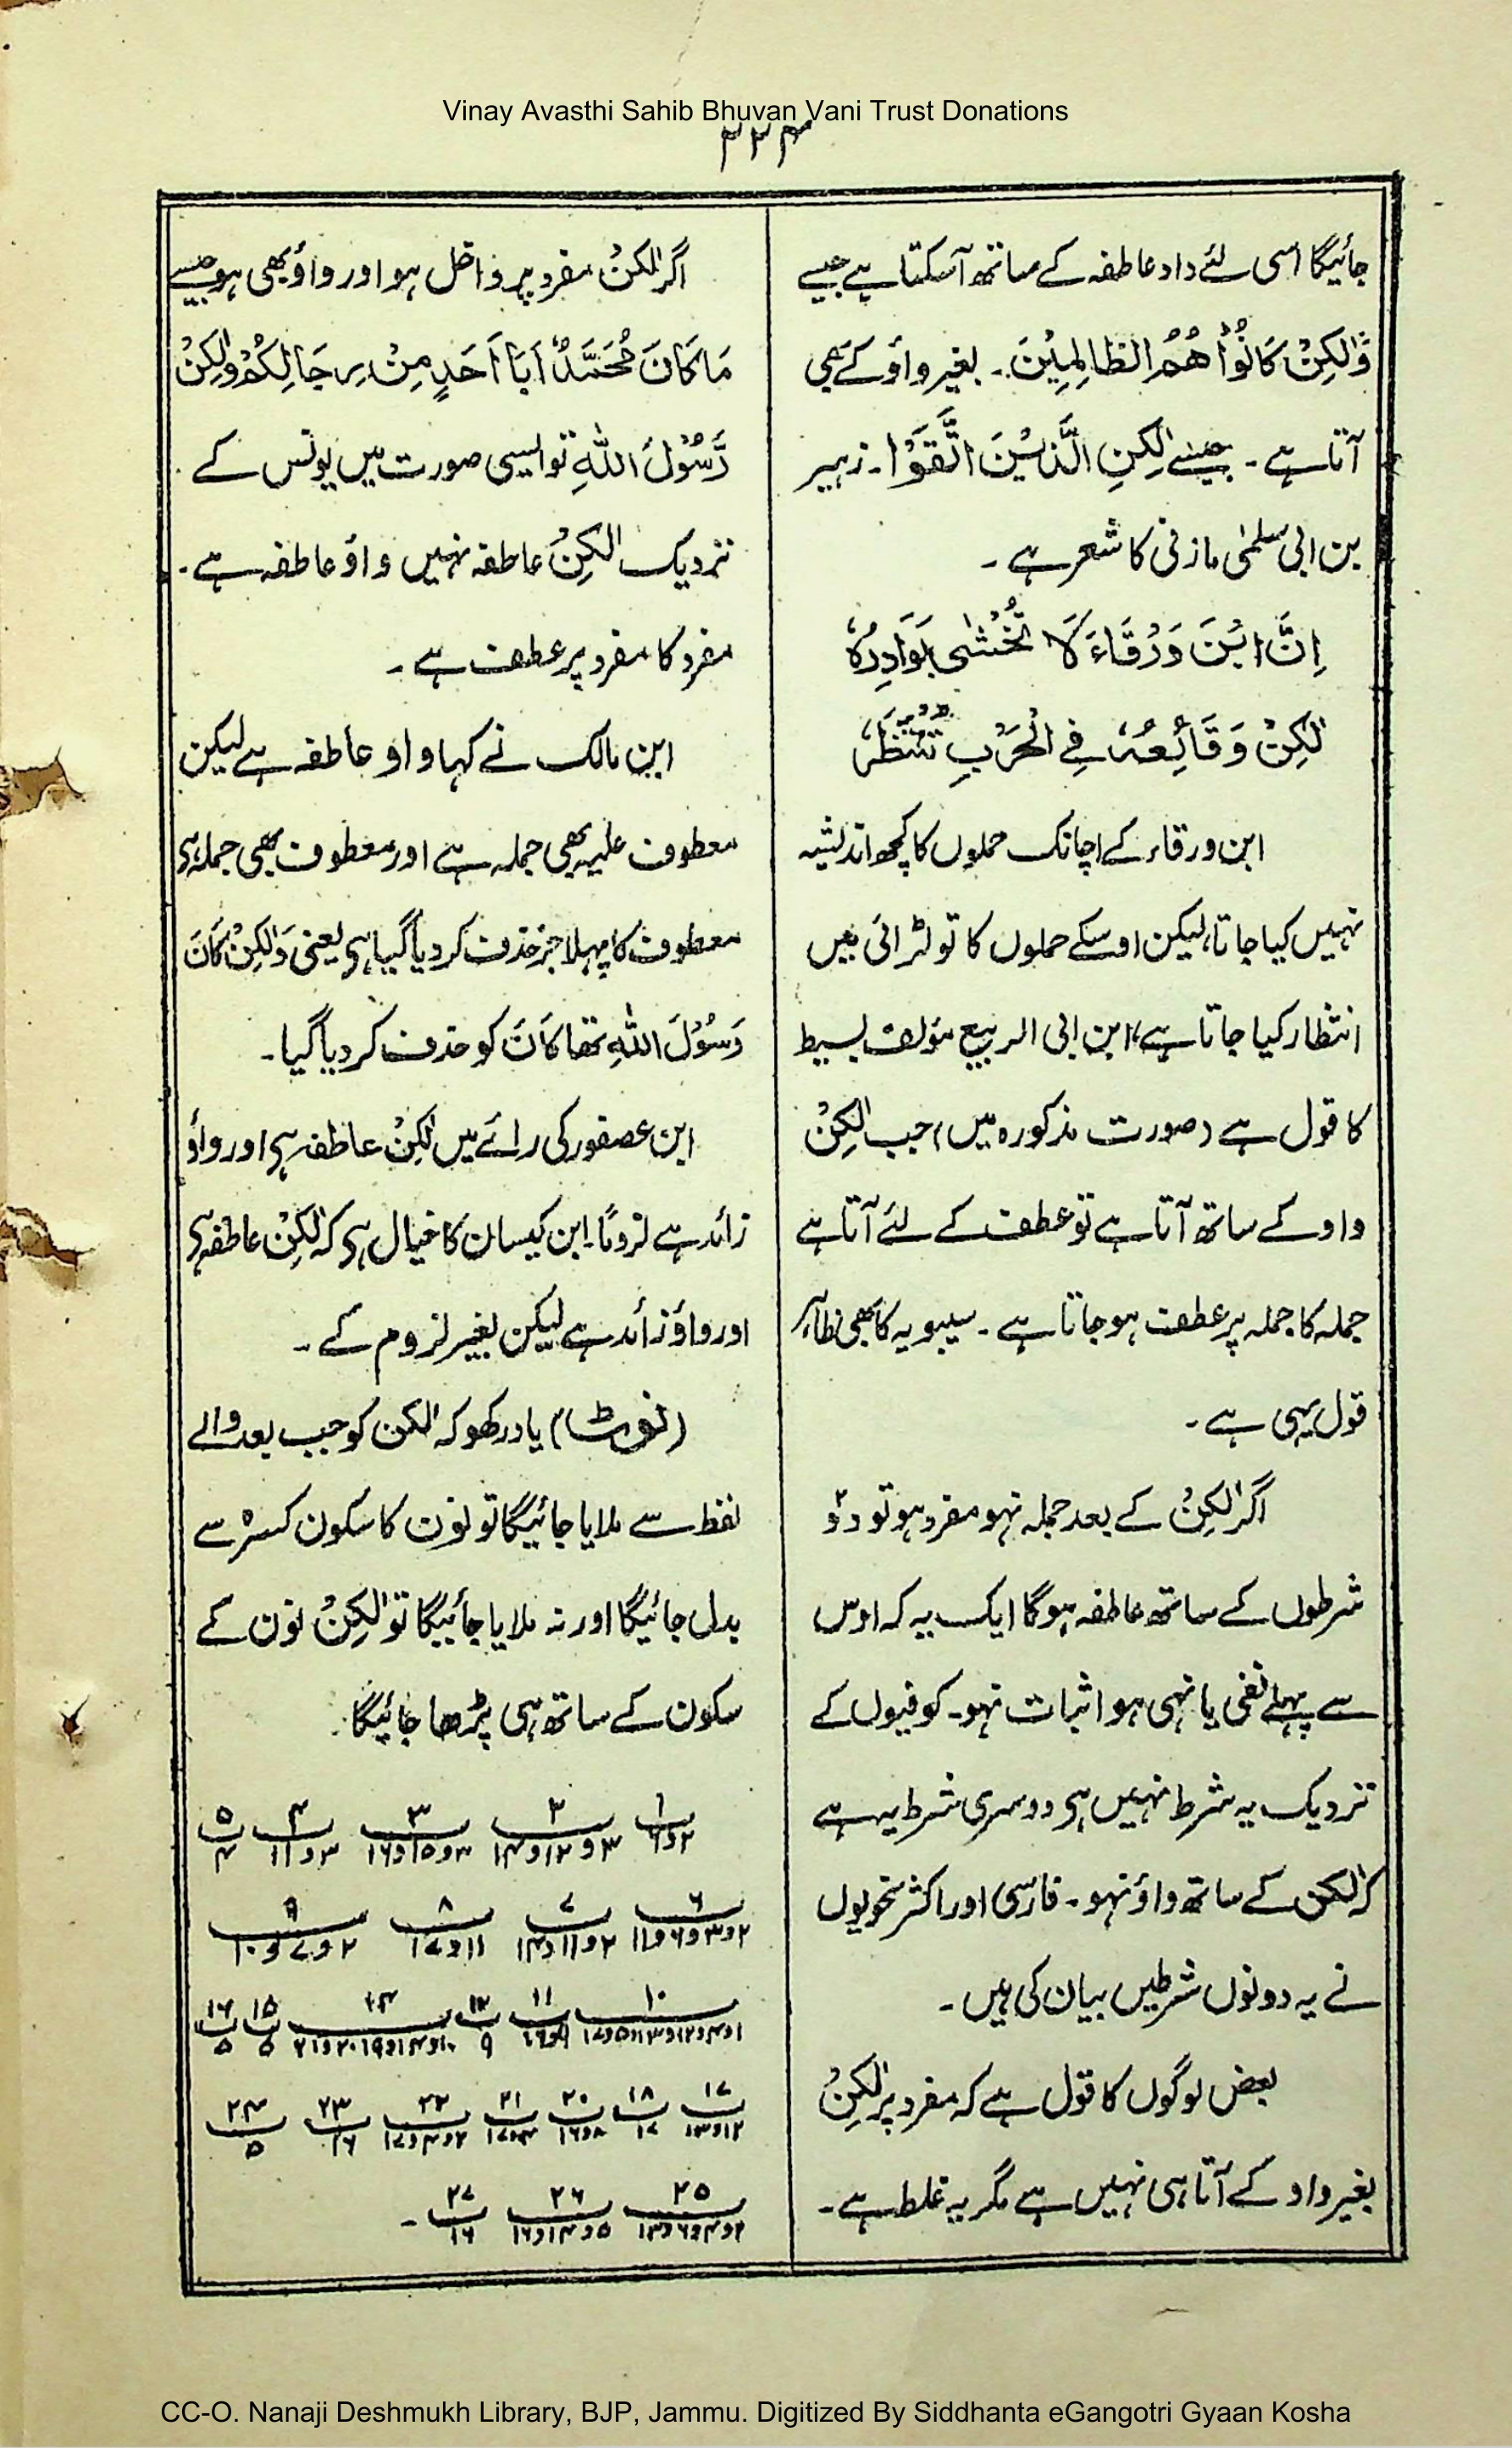 Vinay Avasthi Sahib Bhuvan Vani Trust Donations
۳۲۴
جائیگا اسی لئے واو عاطفہ کے ساتھ آسکتا ہے جیسے
وَّلٰكِنْ كَانُوْا هُمُ الظَّالِمِيْنَ۔ بغیر واؤ کے بھی
آتا ہے۔ جیسے لٰكِنِ الَّذِيْنَ اتَّقَوْا۔ زہیر
بن ابی سلمیٰ مازنی کا شعر ہے۔
اِنَّ ابْنَ وَرْقَاءَ لَا تُخْشٰى بَوَادِرُهٗ
لٰكِنْ وَقَائِعُهٗ فِي الْحَرْبِ تُنْتَظَرُ
ابن ورقاء کے اچانک حملوں کا کچھ اندیشہ
نہیں کیا جاتا، لیکن اوسکے حملوں کا تو لڑائی میں
انتظار کیا جاتا ہے، ابن ابی الربیع مؤلف بسیط
کا قول ہے (صورت مذکورہ میں) جب لٰكِنْ
واو کے ساتھ آتا ہے تو عطف کے لئے آتا ہے
جملہ کا جملہ پر عطف ہو جاتا ہے۔ سیبویہ کا بھی بظاہر
قول یہی ہے۔
اگر لٰكِنْ کے بعد جملہ نہو مفرد ہو تو دو
شرطوں کے ساتھ عاطفہ ہوگا ایک یہ کہ اوس
سے پہلے نفی یا نہی ہو اثبات نہو۔ کوفیوں کے
نزدیک یہ شرط نہیں ہی دوسری شرط یہ ہے
کہ لٰکن کے ساتھ واؤ نہو۔ فارسی اور اکثر نحویوں
نے یہ دونوں شرطیں بیان کی ہیں۔
بعض لوگوں کا قول ہے کہ مفرد پر لٰكِنْ
بغیر واو کے آتا ہی نہیں ہے مگر یہ غلط ہے۔
اگر لٰكِنْ مفرد پر داخل ہو اور واؤ بھی ہو جیسے
مَا كَانَ مُحَمَّدٌ اَبَا اَحَدٍ مِنْ رِجَالِكُمْ وَلٰكِنْ
رَّسُوْلَ اللّٰهِ تو ایسی صورت میں یونس کے
نزدیک لٰكِنْ عاطفہ نہیں واؤ عاطفہ ہے۔
مفرد کا مفرد پر عطف ہے۔
ابن مالک نے کہا واو عاطفہ ہے لیکن
معطوف علیہ بھی جملہ ہے اور معطوف بھی جملہ ہی
معطوف کا پہلا جز حذف کر دیا گیا ہی یعنی وَلٰكِنْ كَانَ
رَسُوْلَ اللّٰهِ تھا كَانَ کو حذف کر دیا گیا۔
ابن عصفور کی رائے میں لٰكِنْ عاطفہ ہی اور واؤ
زائد ہے لزومًا۔ ابن کیسان کا خیال ہی کہ لٰكِنْ عاطفہ ہی
اور واؤ زائد ہے لیکن بغیر لزوم کے۔
(نوٹ) یاد رکھو کہ لٰکن کو جب بعد والے
لفظ سے ملایا جائیگا تو نون کا سکون کسرہ سے
بدل جائیگا اور نہ ملایا جائیگا تو لٰكِنْ نون کے
سکون کے ساتھ ہی پڑھا جائیگا۔
۱ ۲ ۳ ۴ ۵
۲و۶ ۳و۱۲و۱۴ ۳و۱۵و۱۶ ۳و۱۱ ۴
۶ ۷ ۸ ۹
۲و۳و۶و۱۱ ۲و۱۱و۱۴ ۱۱و۱۷ ۲و۷و۱۰
۱۰ ۱۱ ۱۲ ۱۴ ۱۵ ۱۶
۹ ۵ ۵
۱۷ ۱۸ ۲۰ ۲۱ ۲۲ ۲۳ ۲۴
۱۲و۱۳ ۱۷ ۸و۱۶ ۴و۱۷ ۲و۴و۱۷ ۱۶ ۵
۲۵ ۲۶ ۲۷
۲و۴و۶و۱۳ ۵و۱۴و۱۶ ۱۶۔
CC-O. Nanaji Deshmukh Library, BJP, Jammu. Digitized By Siddhanta eGangotri Gyaan Kosha